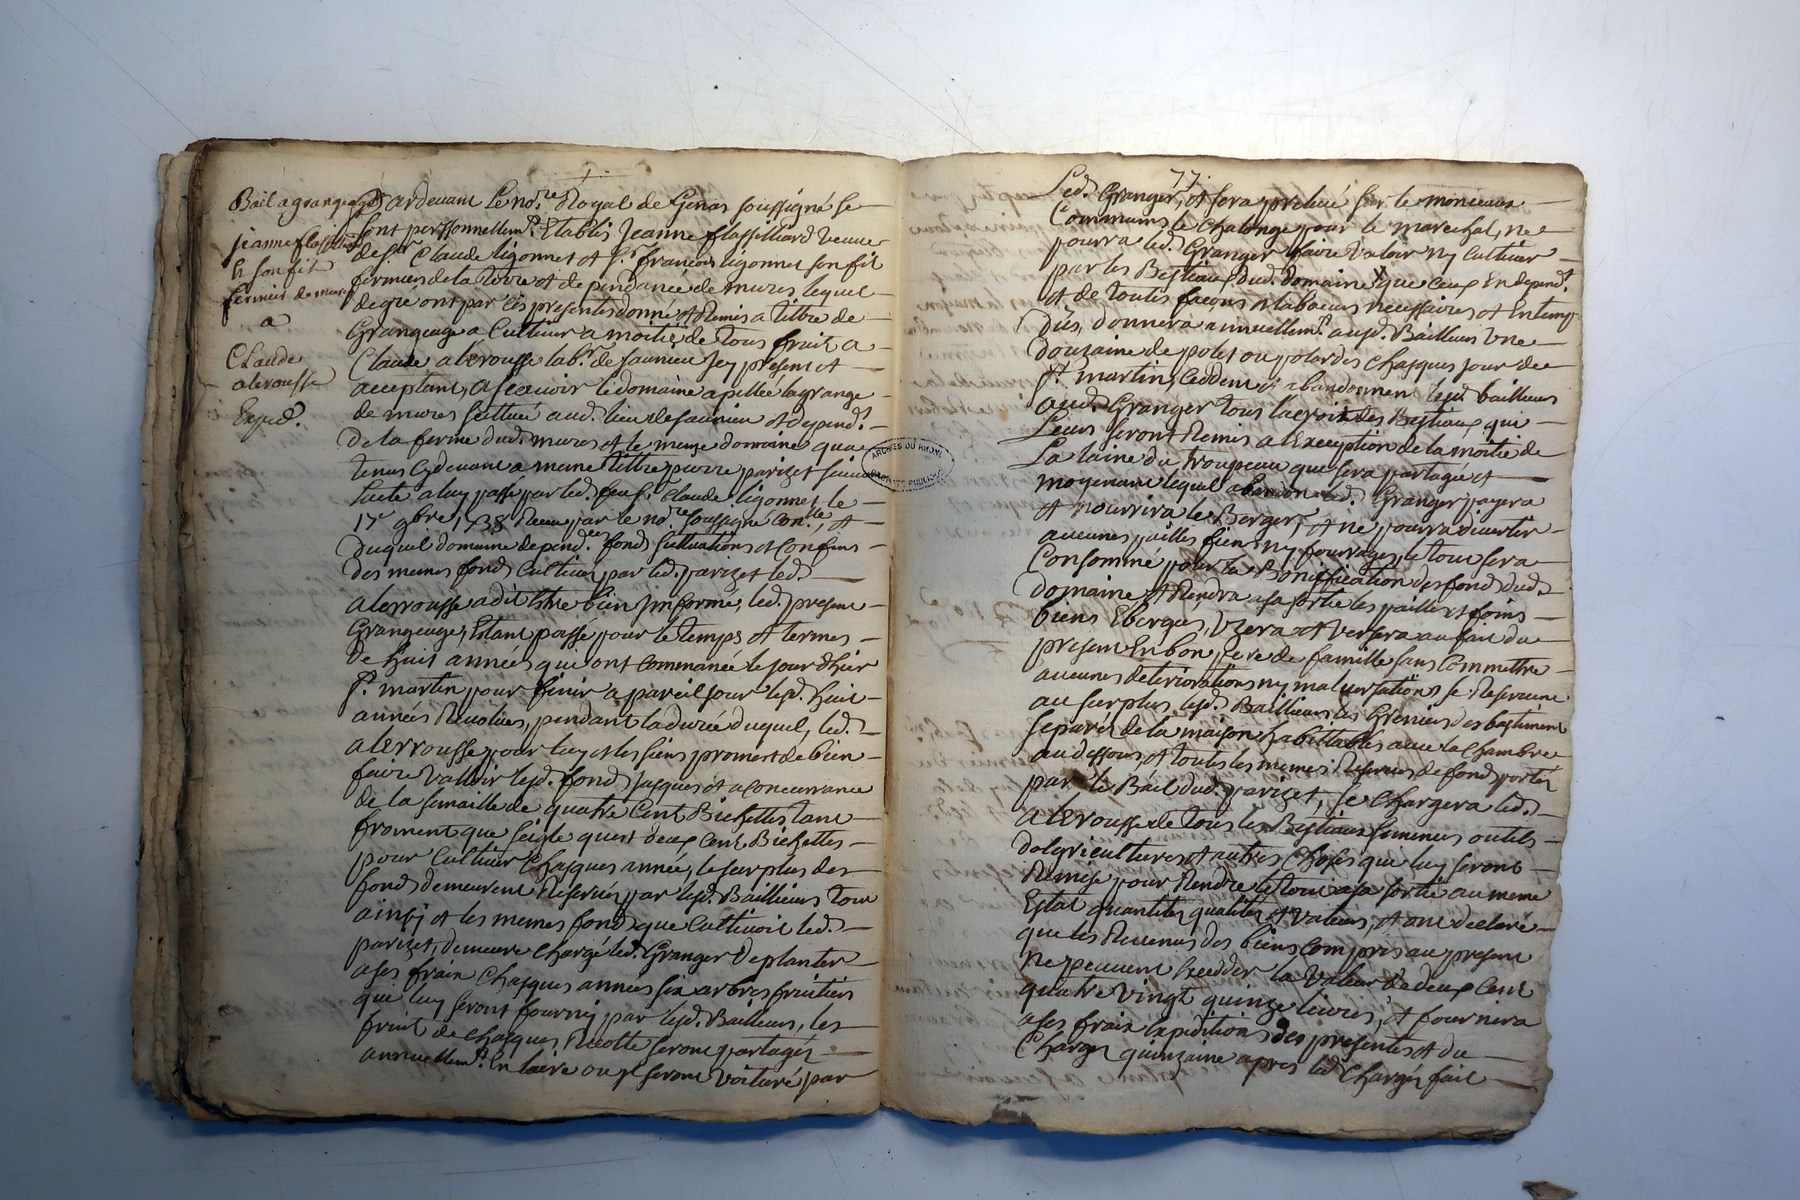 Bail a grangeage
jeanne flassilliard
& son fit
fermier de mures
a
Claude
alerousse
Expéd.
Pardevant le no.re Royal de Genas soussigné se
sont personnellem.t Etablis Jeanne flassilliard veuve
de s.r Claude ligonnet et s.r francois ligonnet son fit
fermiers de la terre et dependance de mures lequel
de gre ont par ces presentes donné et Remis a tittre de
Grangeage a Cultiver a moitié de tous fruit a
Claude alerousse lab.r de saunieu Jcy present et
acceptant, a scavoir le domaine apellée la grange
de mures scittué aud. lieu de saunieu et depend.t
de la ferme dud. mures et le meme domaine qua
tenus cydevant a meme tittre pierre parizet suivant
lacte a luy passé par led. feu s.r Claude ligonnet le
17e 9bre 1738 Receu par le no.re soussigné Con.lle, et
duquel domaine depend.ces fond scittuations et confins
des memes fond Cultivés par led. parizet led.
alerrousse a dit Estre bien Jnformé, led. present
Grangeage Estant passé pour le temps et termes
de huit années qui ont commancé le jour dhier
s.t martin pour finir a pareil jour lesd. huit
années Revolües, pendant la durée duquel, led.
alerrousse pour luy et les siens promet de bien
faire valloir lesd. fond jusques et a concurrance
de la semaille de quatre Cent Bichettes tant
froment que seigle quest deux Cent Bichettes
pour Cultiver Chasques année, le surplus des
fond demeurent Reservés par lesd. Bailleurs tout
ainsi et les memes fond que Cultivoit led.
parizet, demeure Chargé led. Granger de planter
a ses fraix Chasques années six arbres fruitiers
qui luy seront fourny par lesd. Bailleurs, les
fruit de chasques Recolte seront partagés
annuellem.t En laire ou jl seront voituré par
77.
Led. Granger, et sera prelevé sur le monceaux
Communs le chalonge pour le marechal, ne
pourra led. Granger faire valoir ny cultiver
par les Bestiaux dud. domaine que ceux En depend.t
et de toutes façons et labours necessaires et En temp
dûs, donnera annuellem.t ausd. Bailleurs une
douzaine de polets ou polardes chasques jour de
s.t martin, Ceddent et abandonnent lesd. bailleurs
aud. Granger tous lacroit des Bestiaux qui
Leurs seront Remis a lException de la moitié de
La laine du troupeau qui sera partagée et
moyenant lequel abandon led. Granger payera
et nourrira le Berger, et ne pourra divertir
aucunes pailles fiens ny fourrages, le tout sera
Consommé pour la Bonification des fond dud.
domaine et Rendra a sa sortie les pailles et foins
bien Ebergés, Usera et versera au fait du
present En bon pere de famille sans Commettre
aucunes deteriorations ny malversations se Reservent
au surplus lesd. Bailleurs les Greniers des bastiment
separés de la maison habittables avec la chambre
au dessous et toutes les memes Reserves de fond portés
par le Bail dud. parizet, se chargera led.
alerousse de tous les Bestiaux semences outils
dalgricultures et autres choses que luy seront
Remise pour Rendre le tout a sa sortie au meme
Estat quantités qualités et valeurs, et ont declaré
que les Revenus des biens compris au present
ne peuvent Exedder la valeur de deux Cent
quatre vingt quinze livres, et fournera
a ses fraix Expeditions des presentes et du
Charger quinzaine apres led. Chargés fait
ARCHIVES DU RHONE